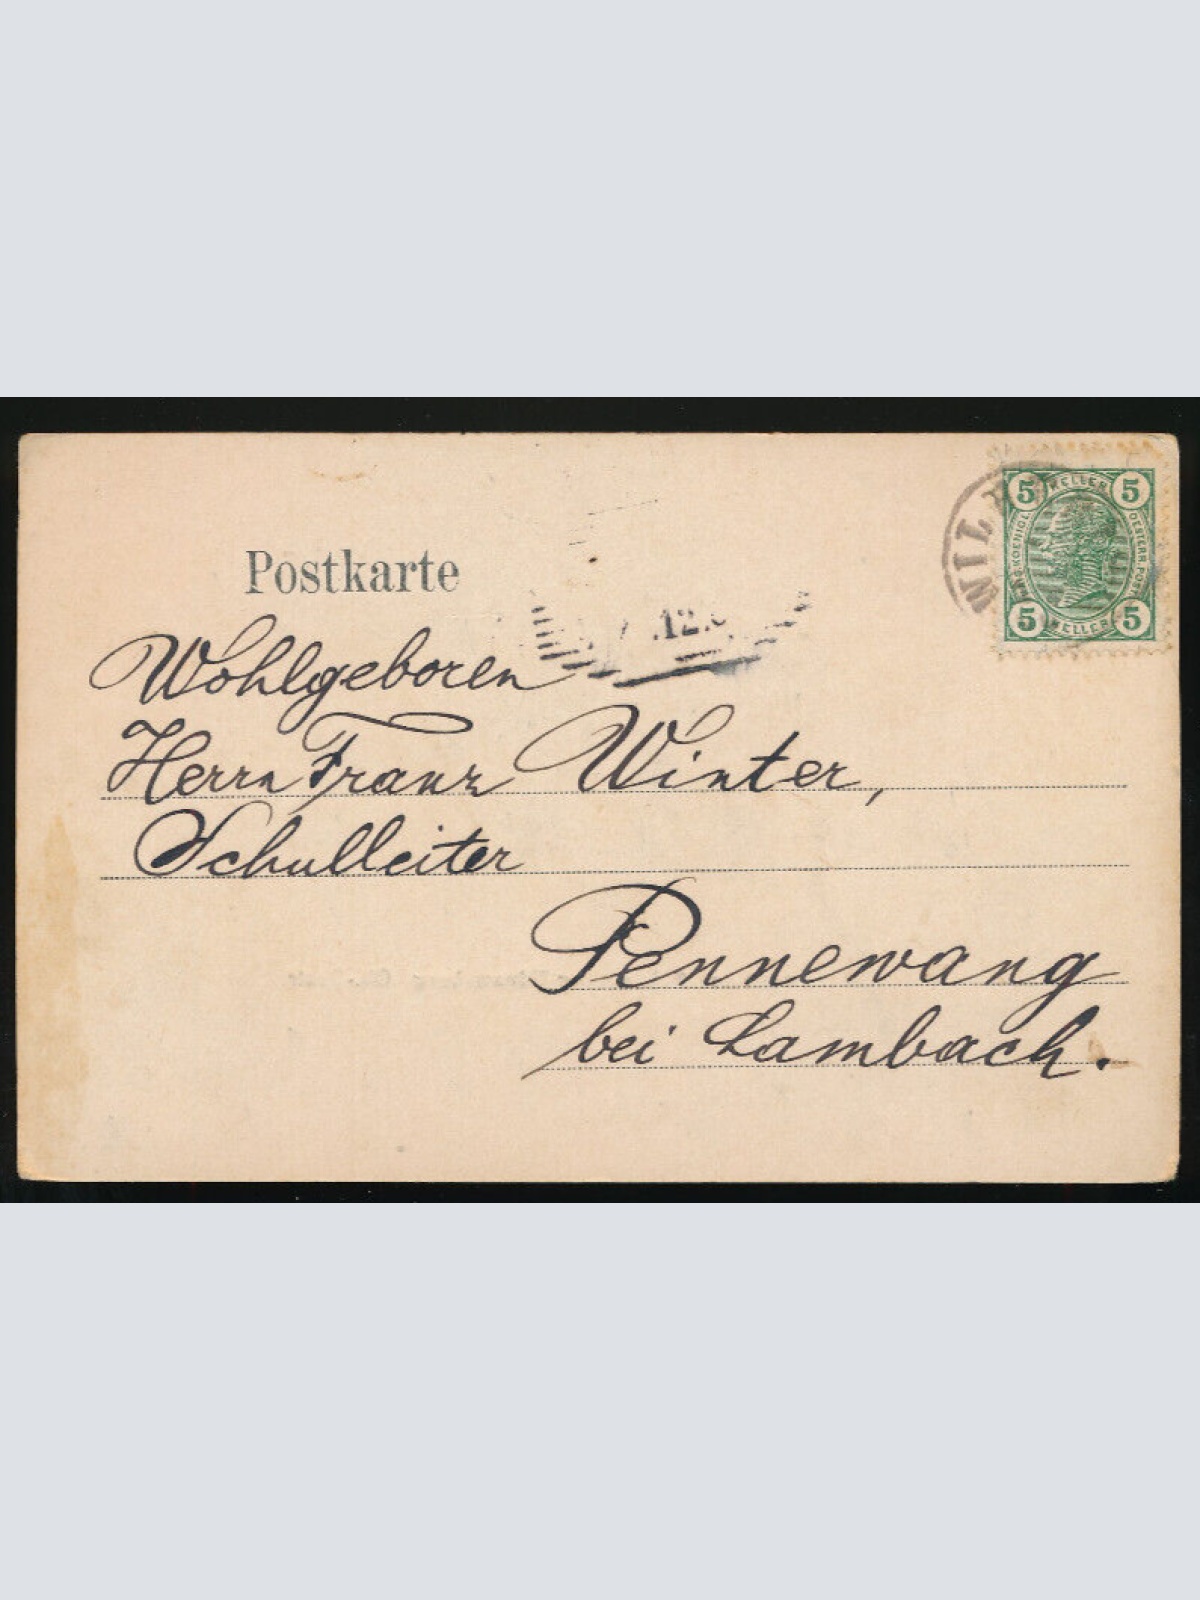 Postkarte
5 HELLER 5
KAIS. KOENIGL. OESTERR. POST
5 HELLER 5
.12.
Wohlgeboren
Herrn Franz Winter,
Schulleiter
Pennewang
bei Lambach.